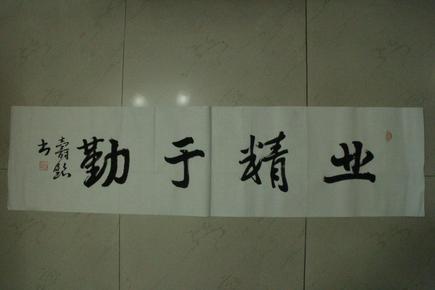 业精于勤
寿铭
书